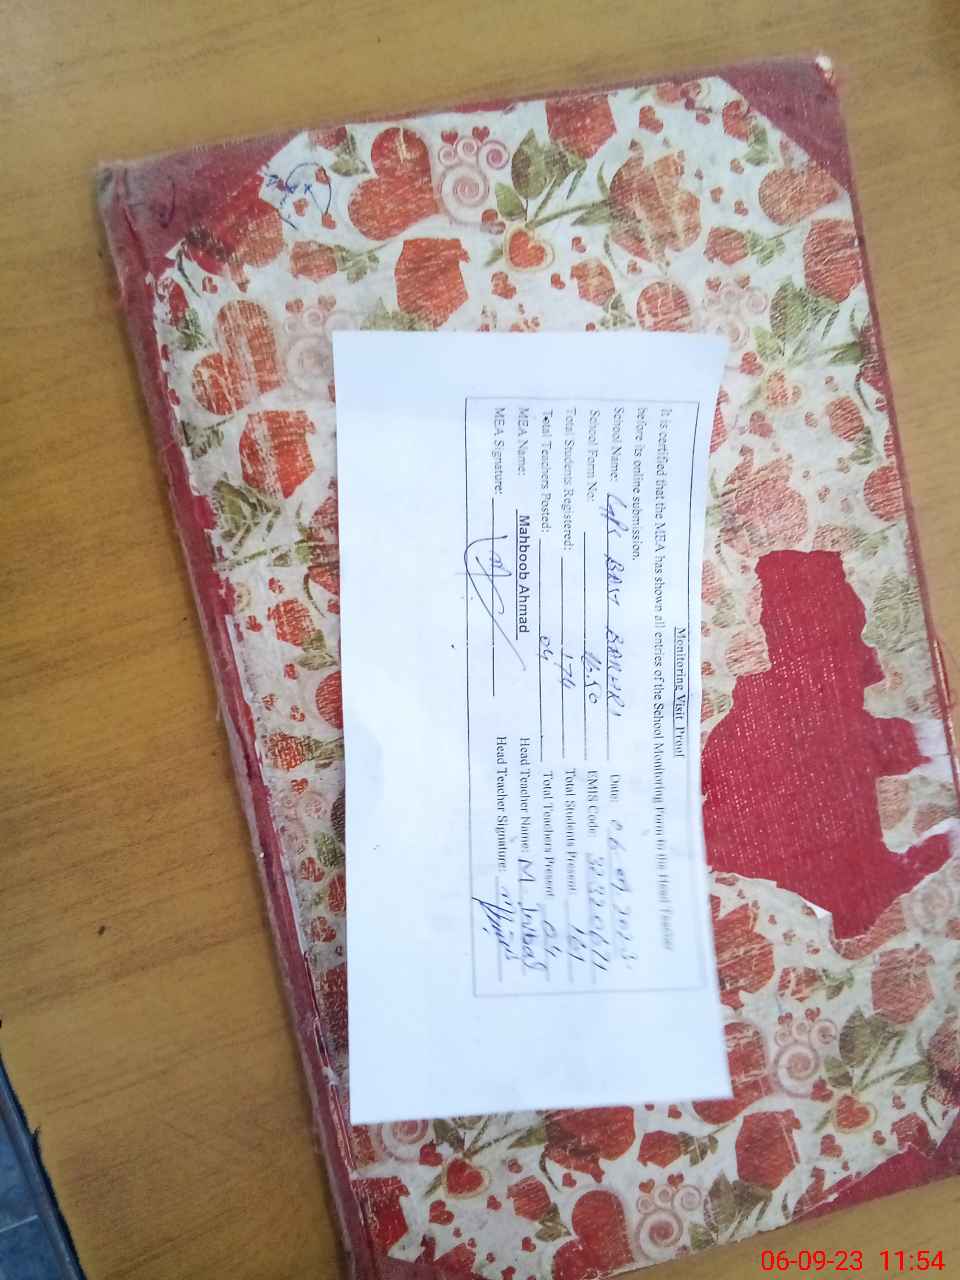 Monitoring Visit Proof
It is certified that the MEA has shown all entries of the School Monitoring Form to the Head Teacher
before its online submission.
School Name: BAST Date: 06-09-2023.
School Form No: 1650 EMIS Code:
Total Students Registered: 174 Total Students Present 161
Total Teachers Posted: 04 Total Teachers Present 04
MEA Name: Mahboob Ahmad Head Teacher Name: M.
MEA Signature: Head Teacher Signature:
06-09-23 11:54